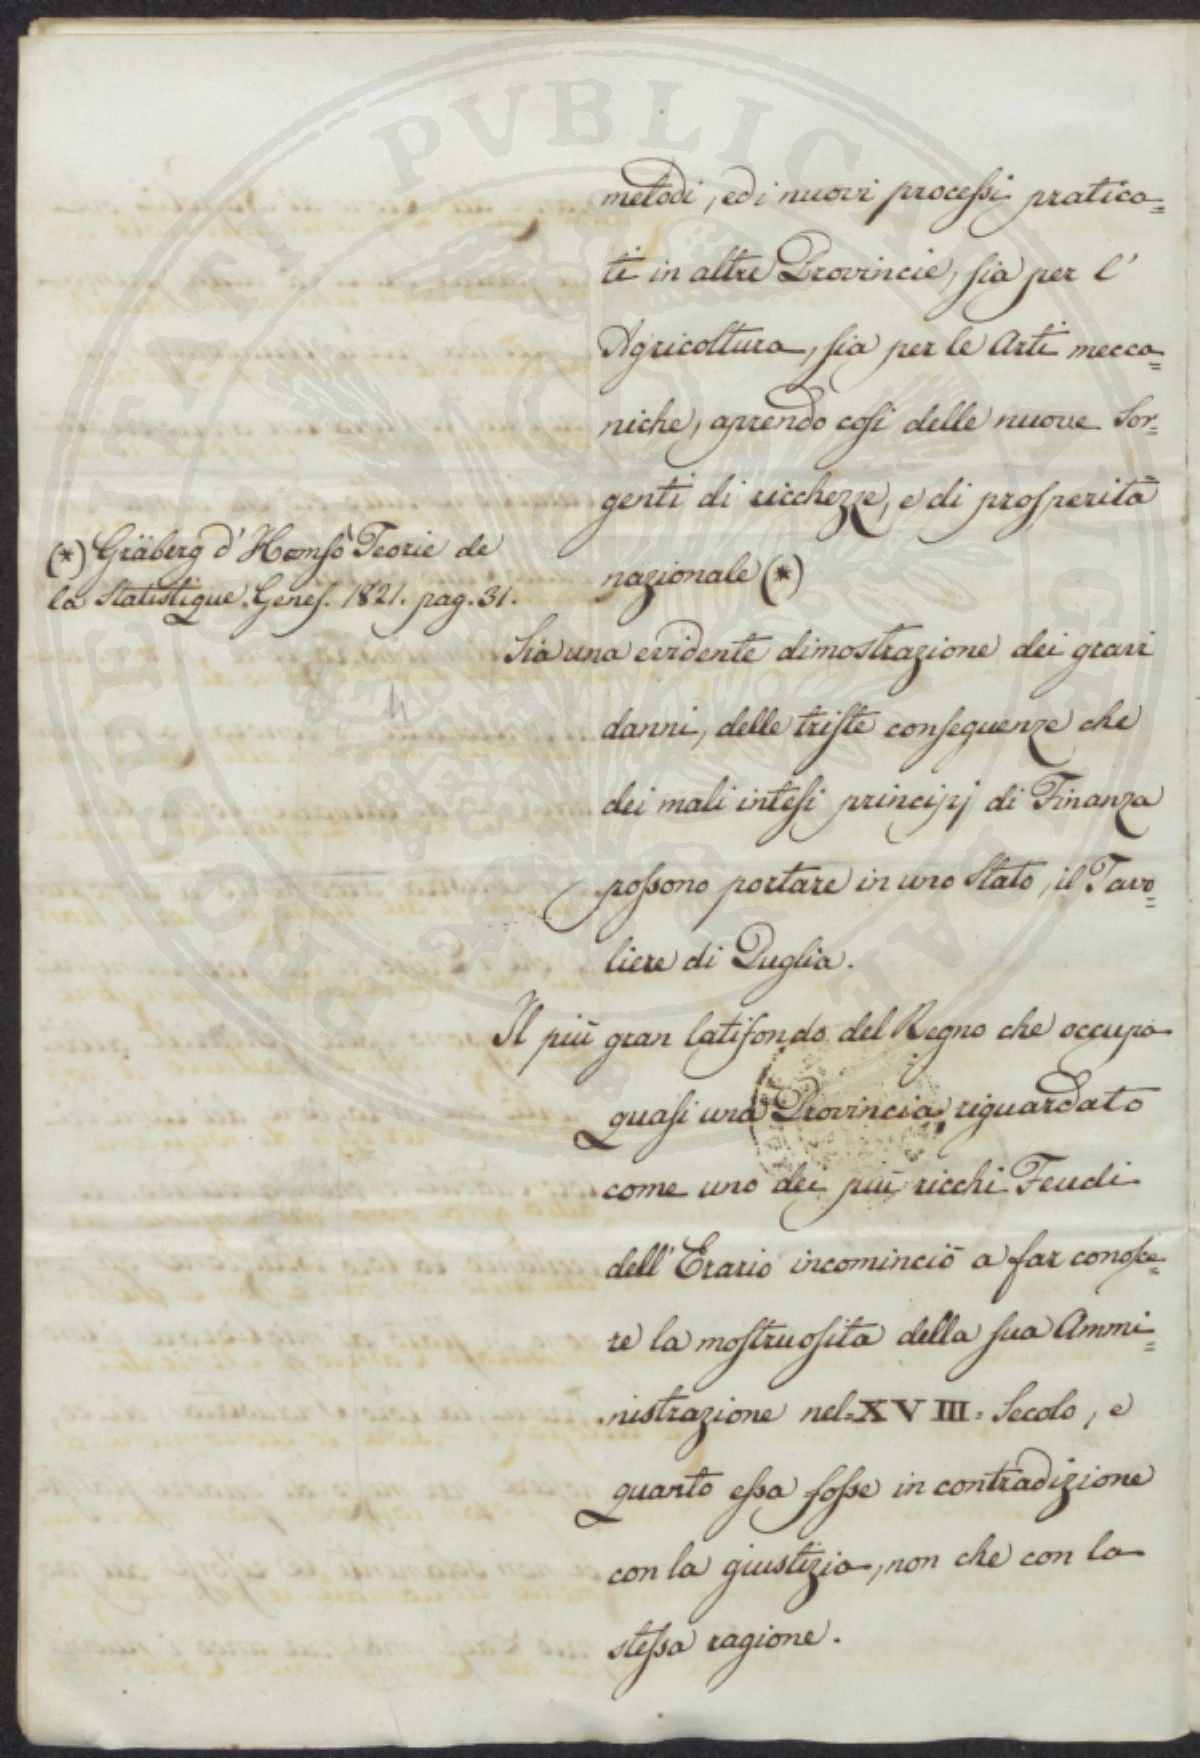 metodi, ed i nuovi processi pratica=
ti in altre Provincie, sia per l'
Agricoltura, sia per le Arti mecca=
niche, aprendo così delle nuove Sor=
genti di ricchezze, e di prosperità
nazionale (*)
(*) Gräberg d'Hemsô Teorie de
la Statistique. Genes. 1821. pag. 31.
Sia una evidente dimostrazione dei gravi
danni, delle triste conseguenze che
dei mali intesi principj di Finanza
possono portare in uno Stato, il Tavo=
liere di Puglia.
Il più gran latifondo del Regno che occupa
quasi una Provincia, riguardato
come uno dei più ricchi Feudi
dell'Erario incominciò a far conosce=
re la mostruosita della sua Ammi=
nistrazione nel=XVIII= Secolo, e
quanto essa fosse in contradizione
con la giustizia, non che con la
stessa ragione.
PROSPERITATI PVBLICAE AVGENDAE